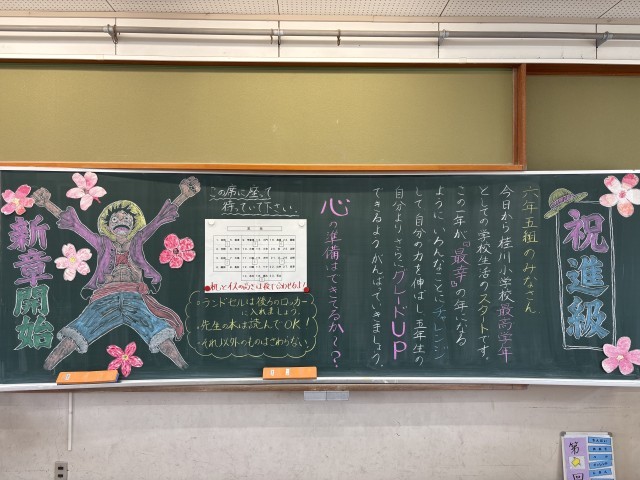 祝進級
六年五組のみなさん
今日から桂川小学校最高学年
としての学校生活のスタートです。
この一年が、"最幸"の年になる
ように、いろんなことにチャレンジ
して自分の力を伸ばし、五年生の
自分よりさらにグレードUP
できるようがんばっていきましょう。
心の準備はできてるか〜？
この席に座って
待っていて下さい。
机とイスの高さは後で合わせるよ!!
・ランドセルは後ろのロッカー
に入れましょう。
・先生の本は読んでOK！
・それ以外のものはさわらない
新章開始
第
回